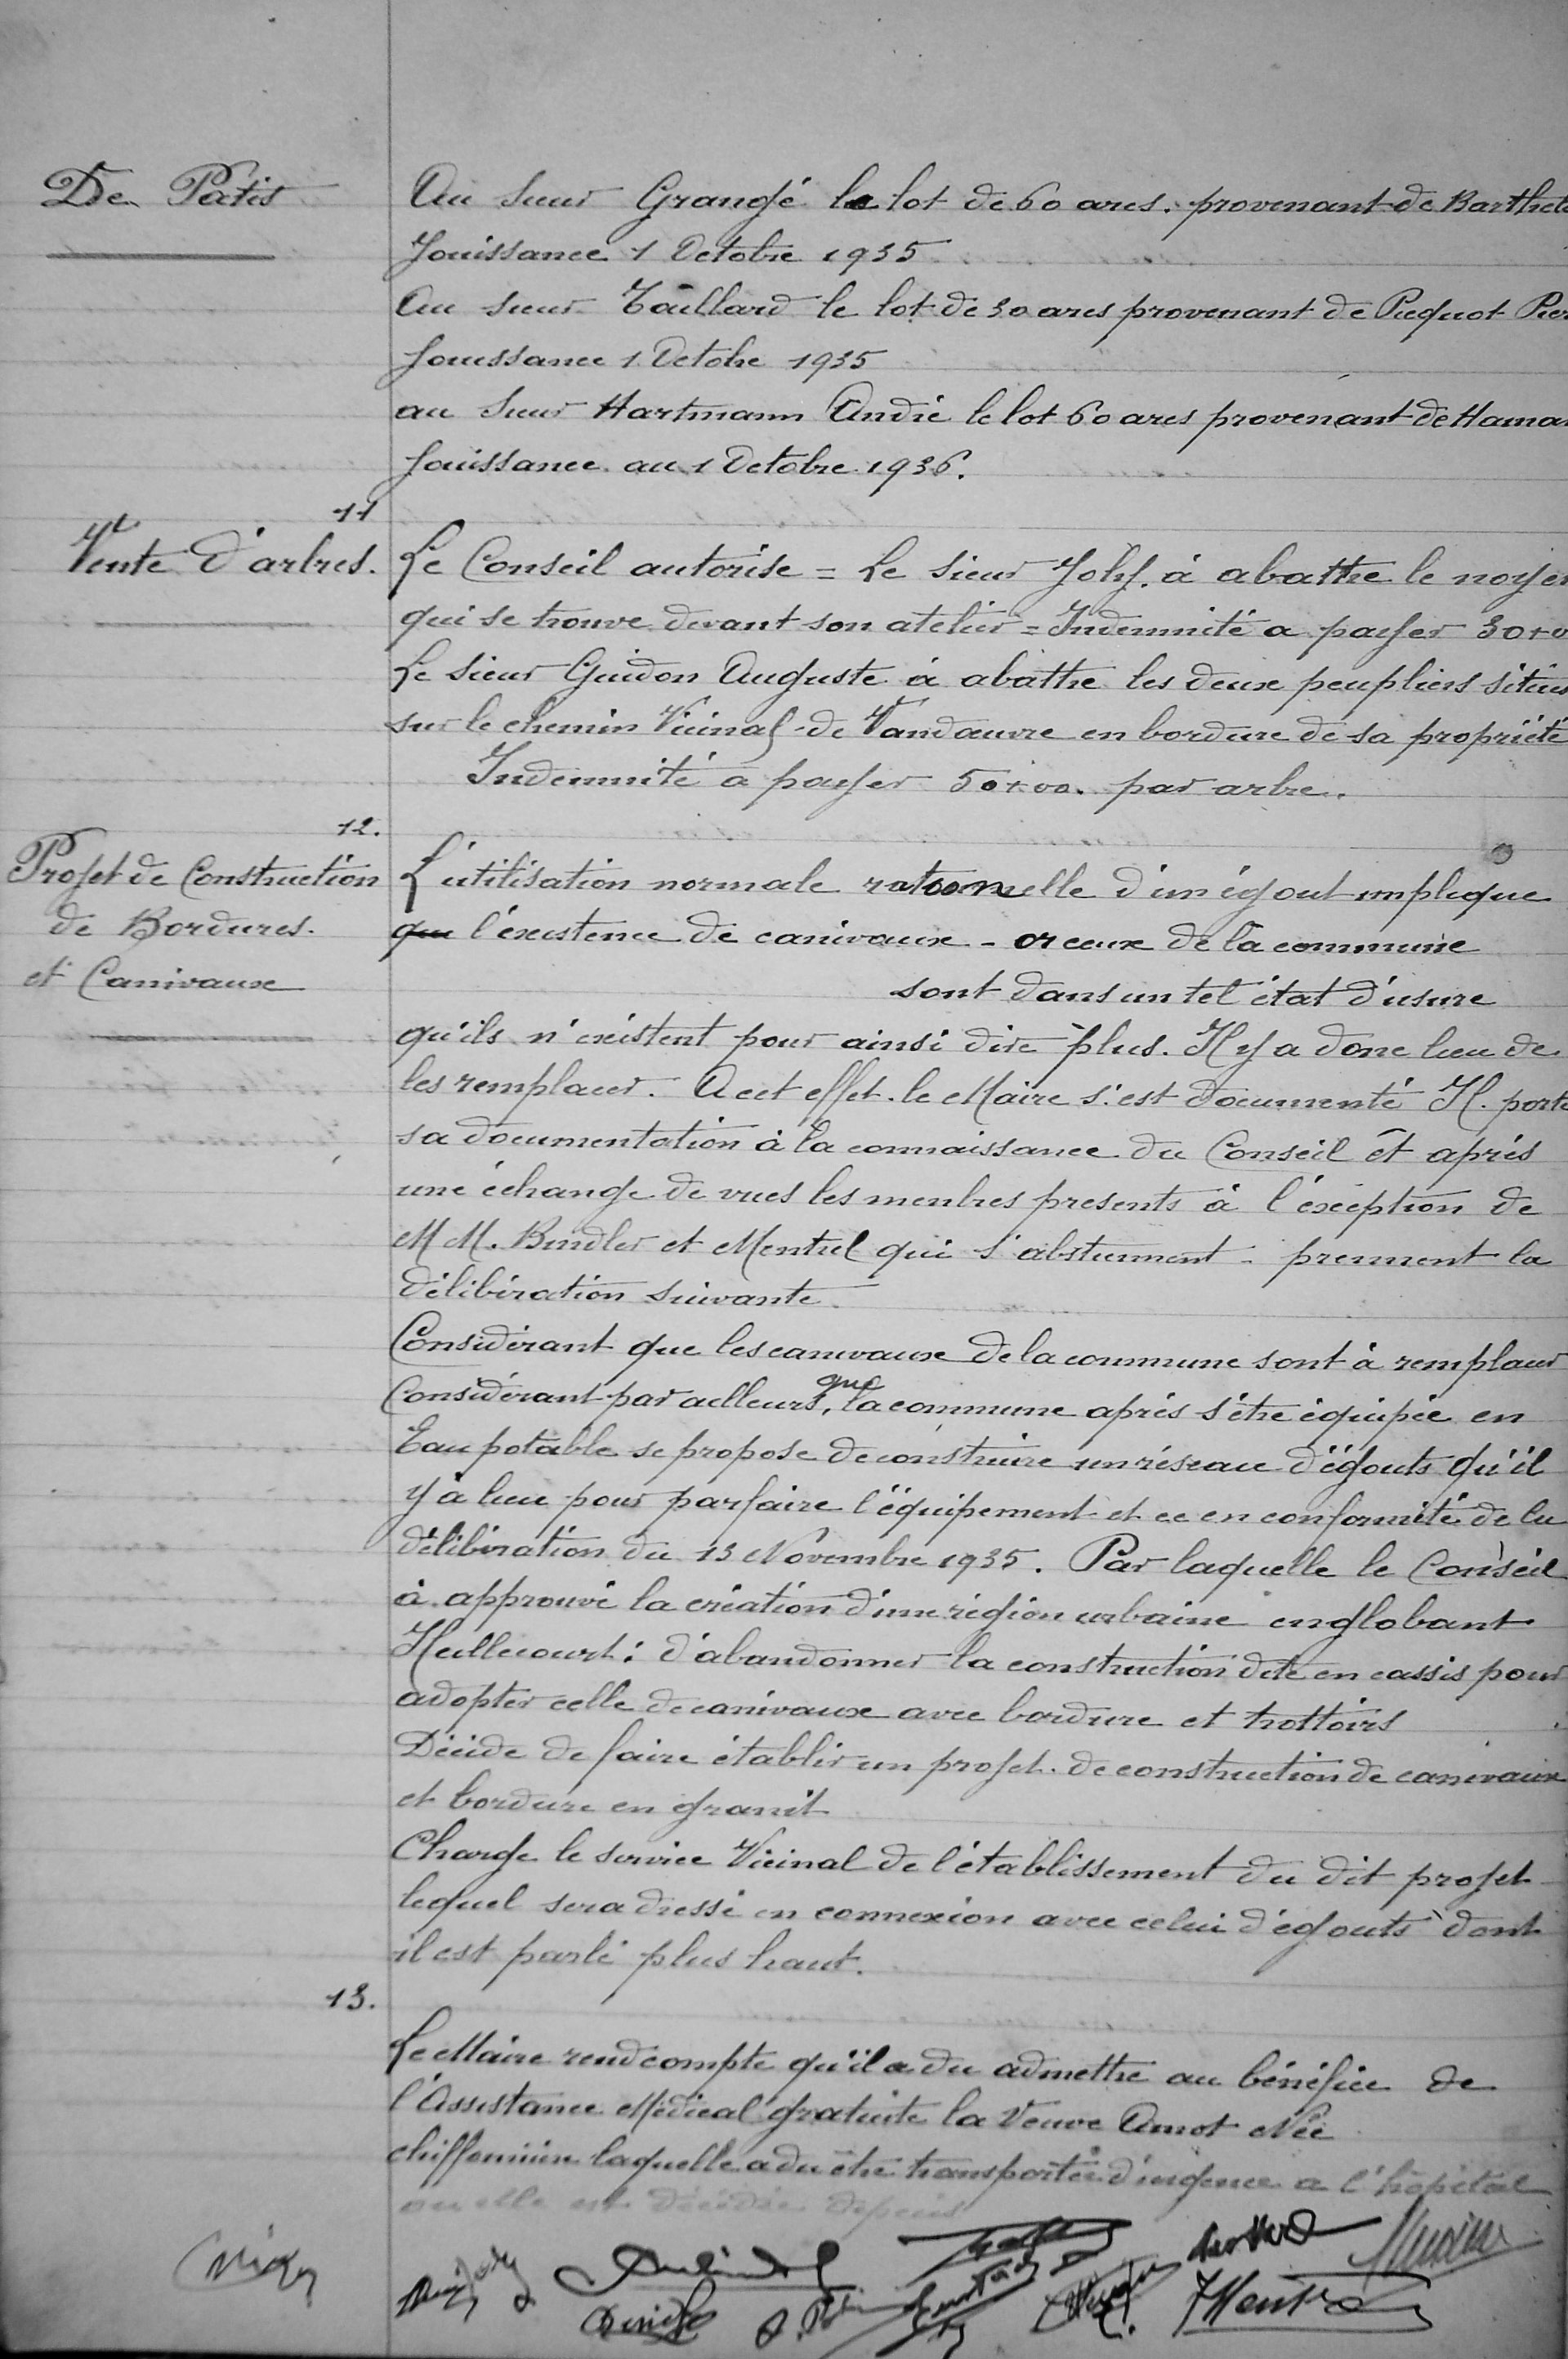 De Patis
Au sieur Grangé le lot de 60 ares. provenant de Barthel
Jouissance 1 Octobre 1935
Au sieur Taillard le lot de 30 ares provenant de Picquot Pier
Jouissance 1 Octobre 1935
au sieur Hartmann André le lot 60 ares provenant de Haman
Jouissance au 1 Octobre 1936.
11
Vente d'arbres.
Le Conseil autorise = Le sieur Joly. à abattre le noyer
qui se trouve devant son atelier = Indemnité a payer 30+0
Le sieur Guidon Auguste à abattre les deux peupliers situés
sur le chemin Vicinal de Vandœuvre en bordure de sa propriété
Indemnité a payer 50+00. par arbre.
12.
Projet de Construction
de Bordures.
et Canivaux
L'utilisation normale rationnelle d'un égout implique
que l'existence de canivaux - or ceux de la commune
sont dans un tel état d'usure
qu'ils n'existent pour ainsi dire plus. Il y a donc lieu de
les remplacer. A cet effet. le Maire s'est documenté Il. porte
sa documentation à la connaissance du Conseil et après
une échange de vues les menbres presents à l'éxception de
MM. Bindler et Mentrel qui s'abstiennent - prennent la
délibération suivante
Considérant que les canivaux de la commune sont à remplacer
Considérant par ailleurs, que la commune après s'être équipée en
Eau potable se propose de construire un réseau d'égouts qu'il
y à lieu pour parfaire l'équipement et ce en conformité de la
délibération du 13 Novembre 1935. Par laquelle le Conseil
à approuvé la création d'une région urbaine englobant
Heillecourt: d'abandonner la construction dite en cassis pour
adopter celle de canivaux avec bordure et trottoirs
Décide de faire établir un projet. de construction de canivaux
et bordure en granit
Charge le service Vicinal de l'établissement du dit projet
lequel sera dressé en connexion avec celui d'égouts dont
il est parlé plus haut.
13.
Le Maire rend compte qu'il a du admettre au bénéfice de
l'Assistance Médical gratuite la Veuve Amot Née
chiffonnière laquelle a du être transportée d'urgence a l'hopital
ou elle est décédée depuis